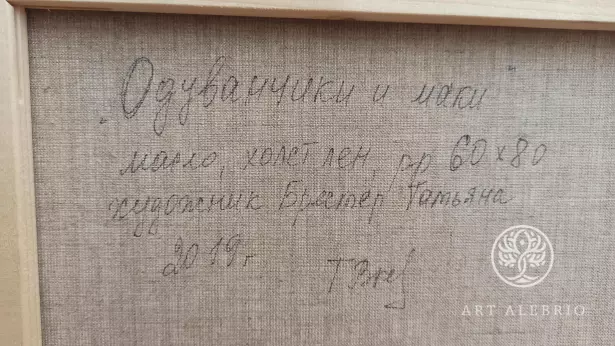 "Одуванчики и маки"
масло, холст лен, рр 60х80
художник Брестер Татьяна
2019г.
ART ALEBRIO